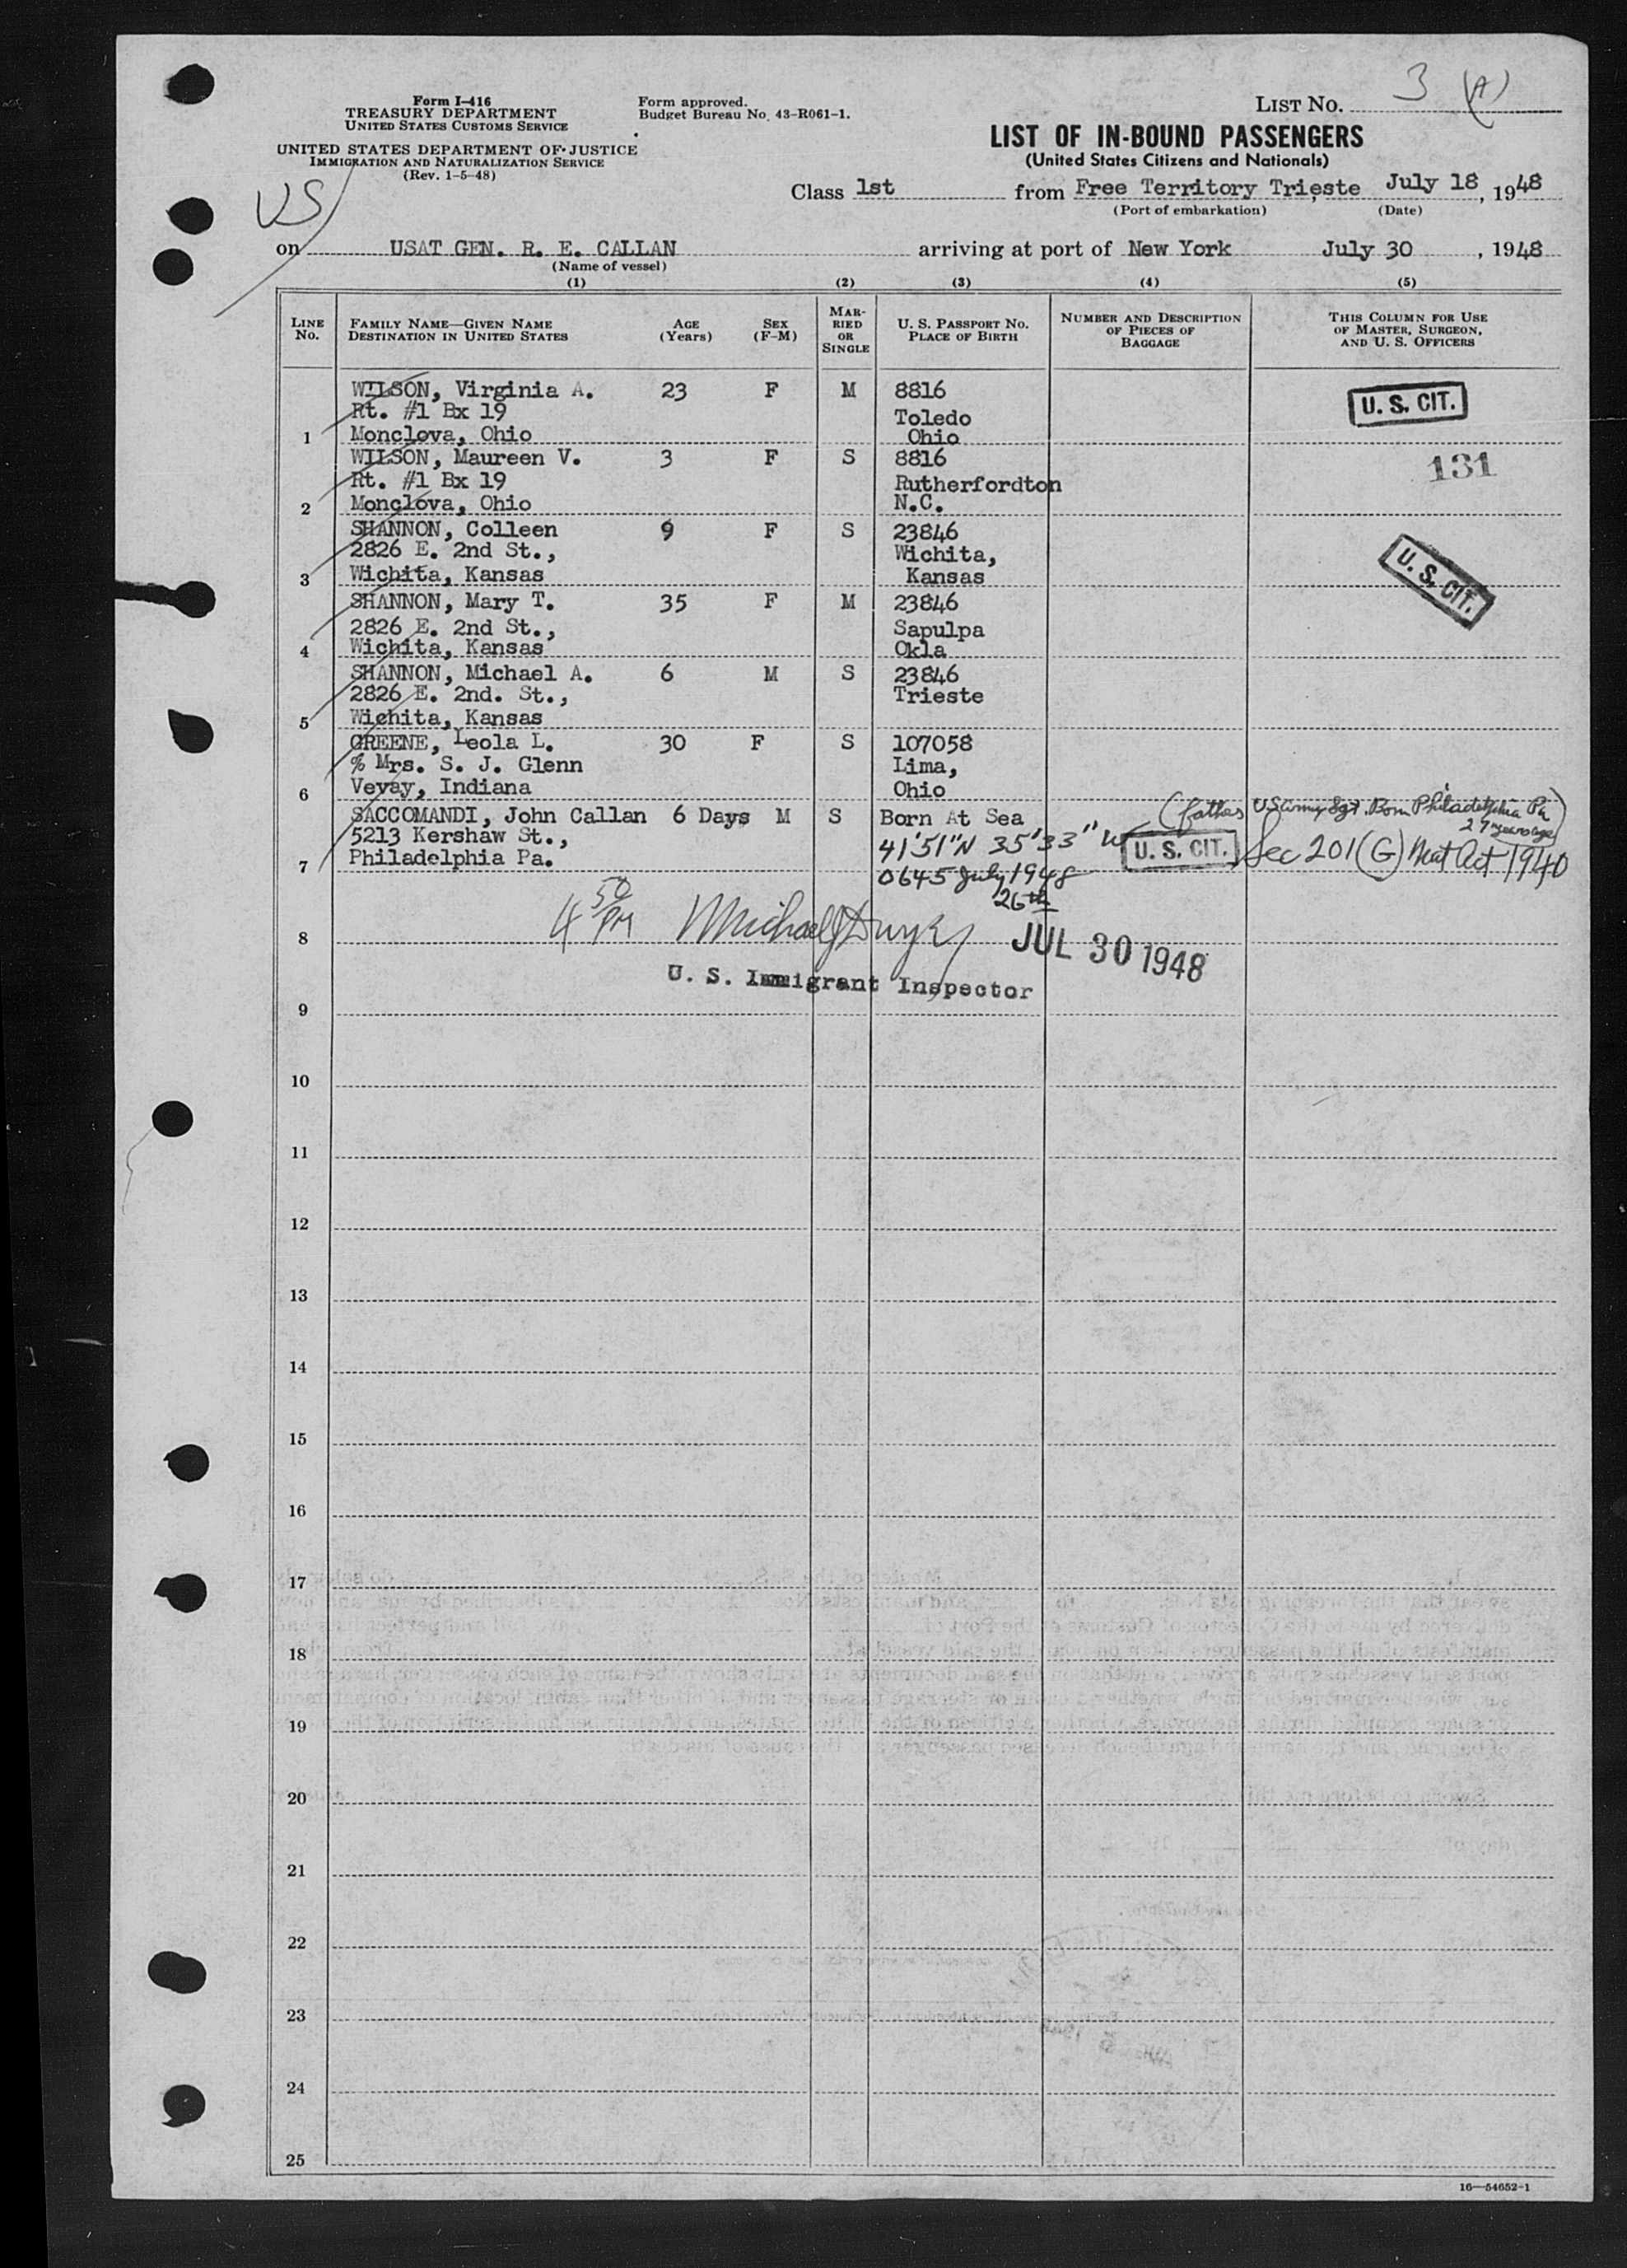 Form I-416
TREASURY DEPARTMENT
UNITED STATES CUSTOMS SERVICE
UNITED STATES DEPARTMENT OF JUSTICE
IMMIGRATION AND NATURALIZATION SERVICE
(Rev. 1-5-48)
Form approved.
Budget Bureau No. 43-R061-1.
LIST NO. 3 (A)
LIST OF IN-BOUND PASSENGERS
(United States Citizens and Nationals)
US
Class 1st from Free Territory Trieste July 18, 1948
(Port of embarkation) (Date)
on USAT GEN. R. E. CALLAN arriving at port of New York July 30, 1948
(Name of vessel)
(1) (2) (3) (4) (5)
LINE No. FAMILY NAME—GIVEN NAME DESTINATION IN UNITED STATES AGE (Years) SEX (F-M) MARRIED OR SINGLE U. S. PASSPORT NO. PLACE OF BIRTH NUMBER AND DESCRIPTION OF PIECES OF BAGGAGE THIS COLUMN FOR USE OF MASTER, SURGEON, AND U. S. OFFICERS
WILSON, Virginia A. 23 F M 8816 U. S. CIT.
Rt. #1 Bx 19 Toledo
1 Monclova, Ohio Ohio
WILSON, Maureen V. 3 F S 8816 131
Rt. #1 Bx 19 Rutherfordton
2 Monclova, Ohio N.C.
SHANNON, Colleen 9 F S 23846
2826 E. 2nd St., Wichita, U. S. CIT.
3 Wichita, Kansas Kansas
SHANNON, Mary T. 35 F M 23846
2826 E. 2nd St., Sapulpa
4 Wichita, Kansas Okla
SHANNON, Michael A. 6 M S 23846
2826 E. 2nd. St., Trieste
5 Wichita, Kansas
GREENE, Leola L. 30 F S 107058
% Mrs. S. J. Glenn Lima,
6 Vevay, Indiana Ohio
SACCOMANDI, John Callan 6 Days M S Born At Sea (father US Army Sgt. Born Philadelphia Pa
27 years ago)
5213 Kershaw St., 41'51"N 35'33" W U. S. CIT. Sec 201 (G) Nat Act 1940
7 Philadelphia Pa. 0645 July 1948
26th
4 50 PM Michael J Dwyer JUL 30 1948
8
U. S. Immigrant Inspector
9
10
11
12
13
14
15
16
17
18
19
20
21
22
23
24
25
16—54652-1